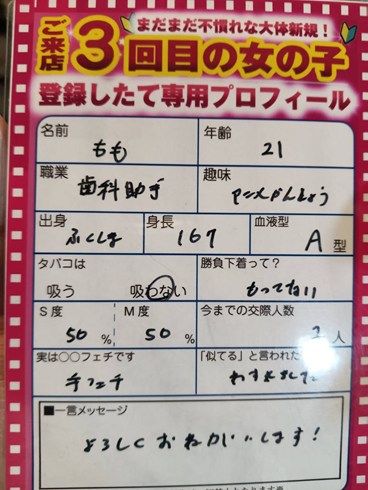 まだまだ不慣れな大体新規！
ご来店３回目の女の子
登録したて専用プロフィール
名前 もも
年齢 21
職業 歯科助手
趣味 アニメかんしょう
出身 ふくしま
身長 167
血液型 A型
タバコは 吸う 吸わない
勝負下着って？ もってない
S度 50%
M度 50%
今までの交際人数 人
実は○○フェチです 手フェチ
「似てる」と言われた わすれました
■一言メッセージ
よろしくおねがいします！